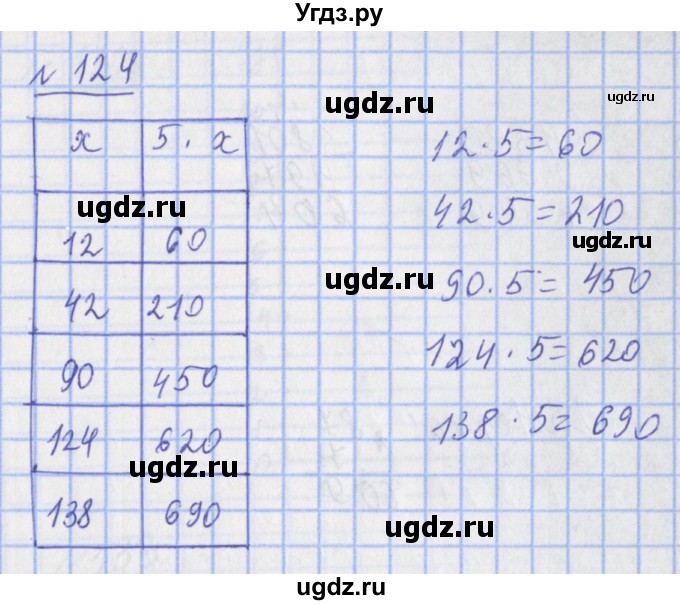 Угдз.ру
№ 124
x 5 · x
12 60
42 210
90 450
124 620
138 690
12 · 5 = 60
42 · 5 = 210
90 · 5 = 450
124 · 5 = 620
138 · 5 = 690
ugdz.ru
ugdz.ru
ugdz.ru
ugdz.ru
ugdz.ru
ugdz.ru
ugdz.ru
ugdz.ru